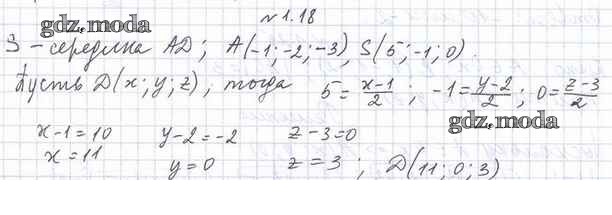 № 1.18
gdz.moda
S – середина AD; A(-1; -2; -3), S(5; -1; 0).
Пусть D(x; y; z), тогда 5 = \frac{x-1}{2}; -1 = \frac{y-2}{2}; 0 = \frac{z-3}{2}
gdz.moda
x-1=10 y-2=-2 z-3=0
x=11 y=0 z=3; D(11; 0; 3)